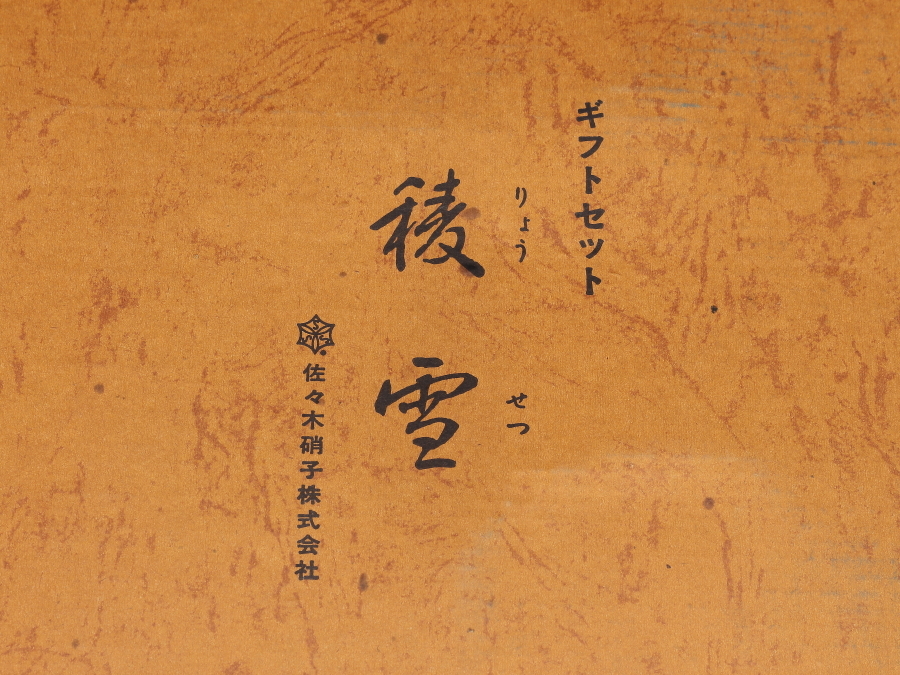 ギフトセット
りょう
せつ
稜雪
佐々木硝子株式会社